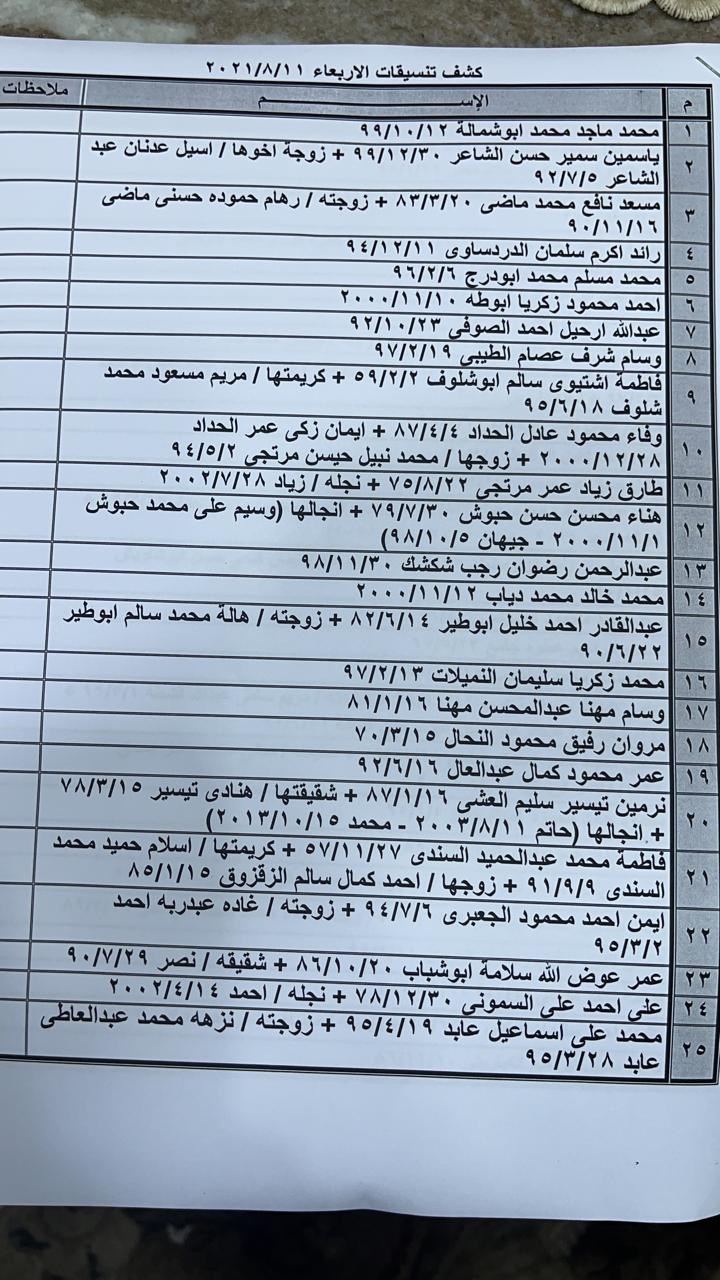 كشف تنسيقات الاربعاء ٢٠٢١/٨/١١
م الإســـــم ملاحظات
١ محمد ماجد محمد ابوشمالة ٩٩/١٠/١٢
٢ ياسمين سمير حسن الشاعر ٩٩/١٢/٣٠ + زوجة اخوها / اسيل عدنان عبد
الشاعر ٩٢/٧/٥
٣ مسعد نافع محمد ماضى ٨٣/٣/٢٠ + زوجته / رهام حموده حسنى ماضى
٩٠/١١/١٦
٤ رائد اكرم سلمان الدردساوى ٩٤/١٢/١١
٥ محمد مسلم محمد ابودرج ٩٦/٢/٦
٦ احمد محمود زكريا ابوطه ٢٠٠٠/١١/١٠
٧ عبدالله ارحيل احمد الصوفى ٩٢/١٠/٢٣
٨ وسام شرف عصام الطيبى ٩٧/٢/١٩
٩ فاطمة اشتيوى سالم ابوشلوف ٥٩/٢/٢ + كريمتها / مريم مسعود محمد
شلوف ٩٥/٦/١٨
١٠ وفاء محمود عادل الحداد ٨٧/٤/٤ + ايمان زكى عمر الحداد
٢٠٠٠/١٢/٢٨ + زوجها / محمد نبيل حيسن مرتجى ٩٤/٥/٢
١١ طارق زياد عمر مرتجى ٧٥/٨/٢٢ + نجله / زياد ٢٠٠٢/٧/٢٨
١٢ هناء محسن حسن حبوش ٧٩/٧/٣٠ + انجالها (وسيم على محمد حبوش
٢٠٠٠/١١/١ - جيهان ٩٨/١٠/٥)
١٣ عبدالرحمن رضوان رجب شكشك ٩٨/١١/٣٠
١٤ محمد خالد محمد دياب ٢٠٠٠/١١/١٢
١٥ عبدالقادر احمد خليل ابوطير ٨٢/٦/١٤ + زوجته / هالة محمد سالم ابوطير
٩٠/٦/٢٢
١٦ محمد زكريا سليمان النميلات ٩٧/٢/١٣
١٧ وسام مهنا عبدالمحسن مهنا ٨١/١/١٦
١٨ مروان رفيق محمود النحال ٧٠/٣/١٥
١٩ عمر محمود كمال عبدالعال ٩٢/٦/١٦
٢٠ نرمين تيسير سليم العشي ٨٧/١/١٦ + شقيقتها / هنادى تيسير ٧٨/٣/١٥
+ انجالها (حاتم ٢٠٠٣/٨/١١ - محمد ٢٠١٣/١٠/١٥)
٢١ فاطمة محمد عبدالحميد السندى ٥٧/١١/٢٧ + كريمتها / اسلام حميد محمد
السندى ٩١/٩/٩ + زوجها / احمد كمال سالم الزقزوق ٨٥/١/١٥
٢٢ ايمن احمد محمود الجعبرى ٩٤/٧/٦ + زوجته / غاده عبدربه احمد
٩٥/٣/٢
٢٣ عمر عوض الله سلامة ابوشباب ٨٦/١٠/٢٠ + شقيقه / نصر ٩٠/٧/٢٩
٢٤ على احمد على السمونى ٧٨/١٢/٣٠ + نجله / احمد ٢٠٠٢/٤/١٤
٢٥ محمد على اسماعيل عابد ٩٥/٤/١٩ + زوجته / نزهه محمد عبدالعاطى
عابد ٩٥/٣/٢٨